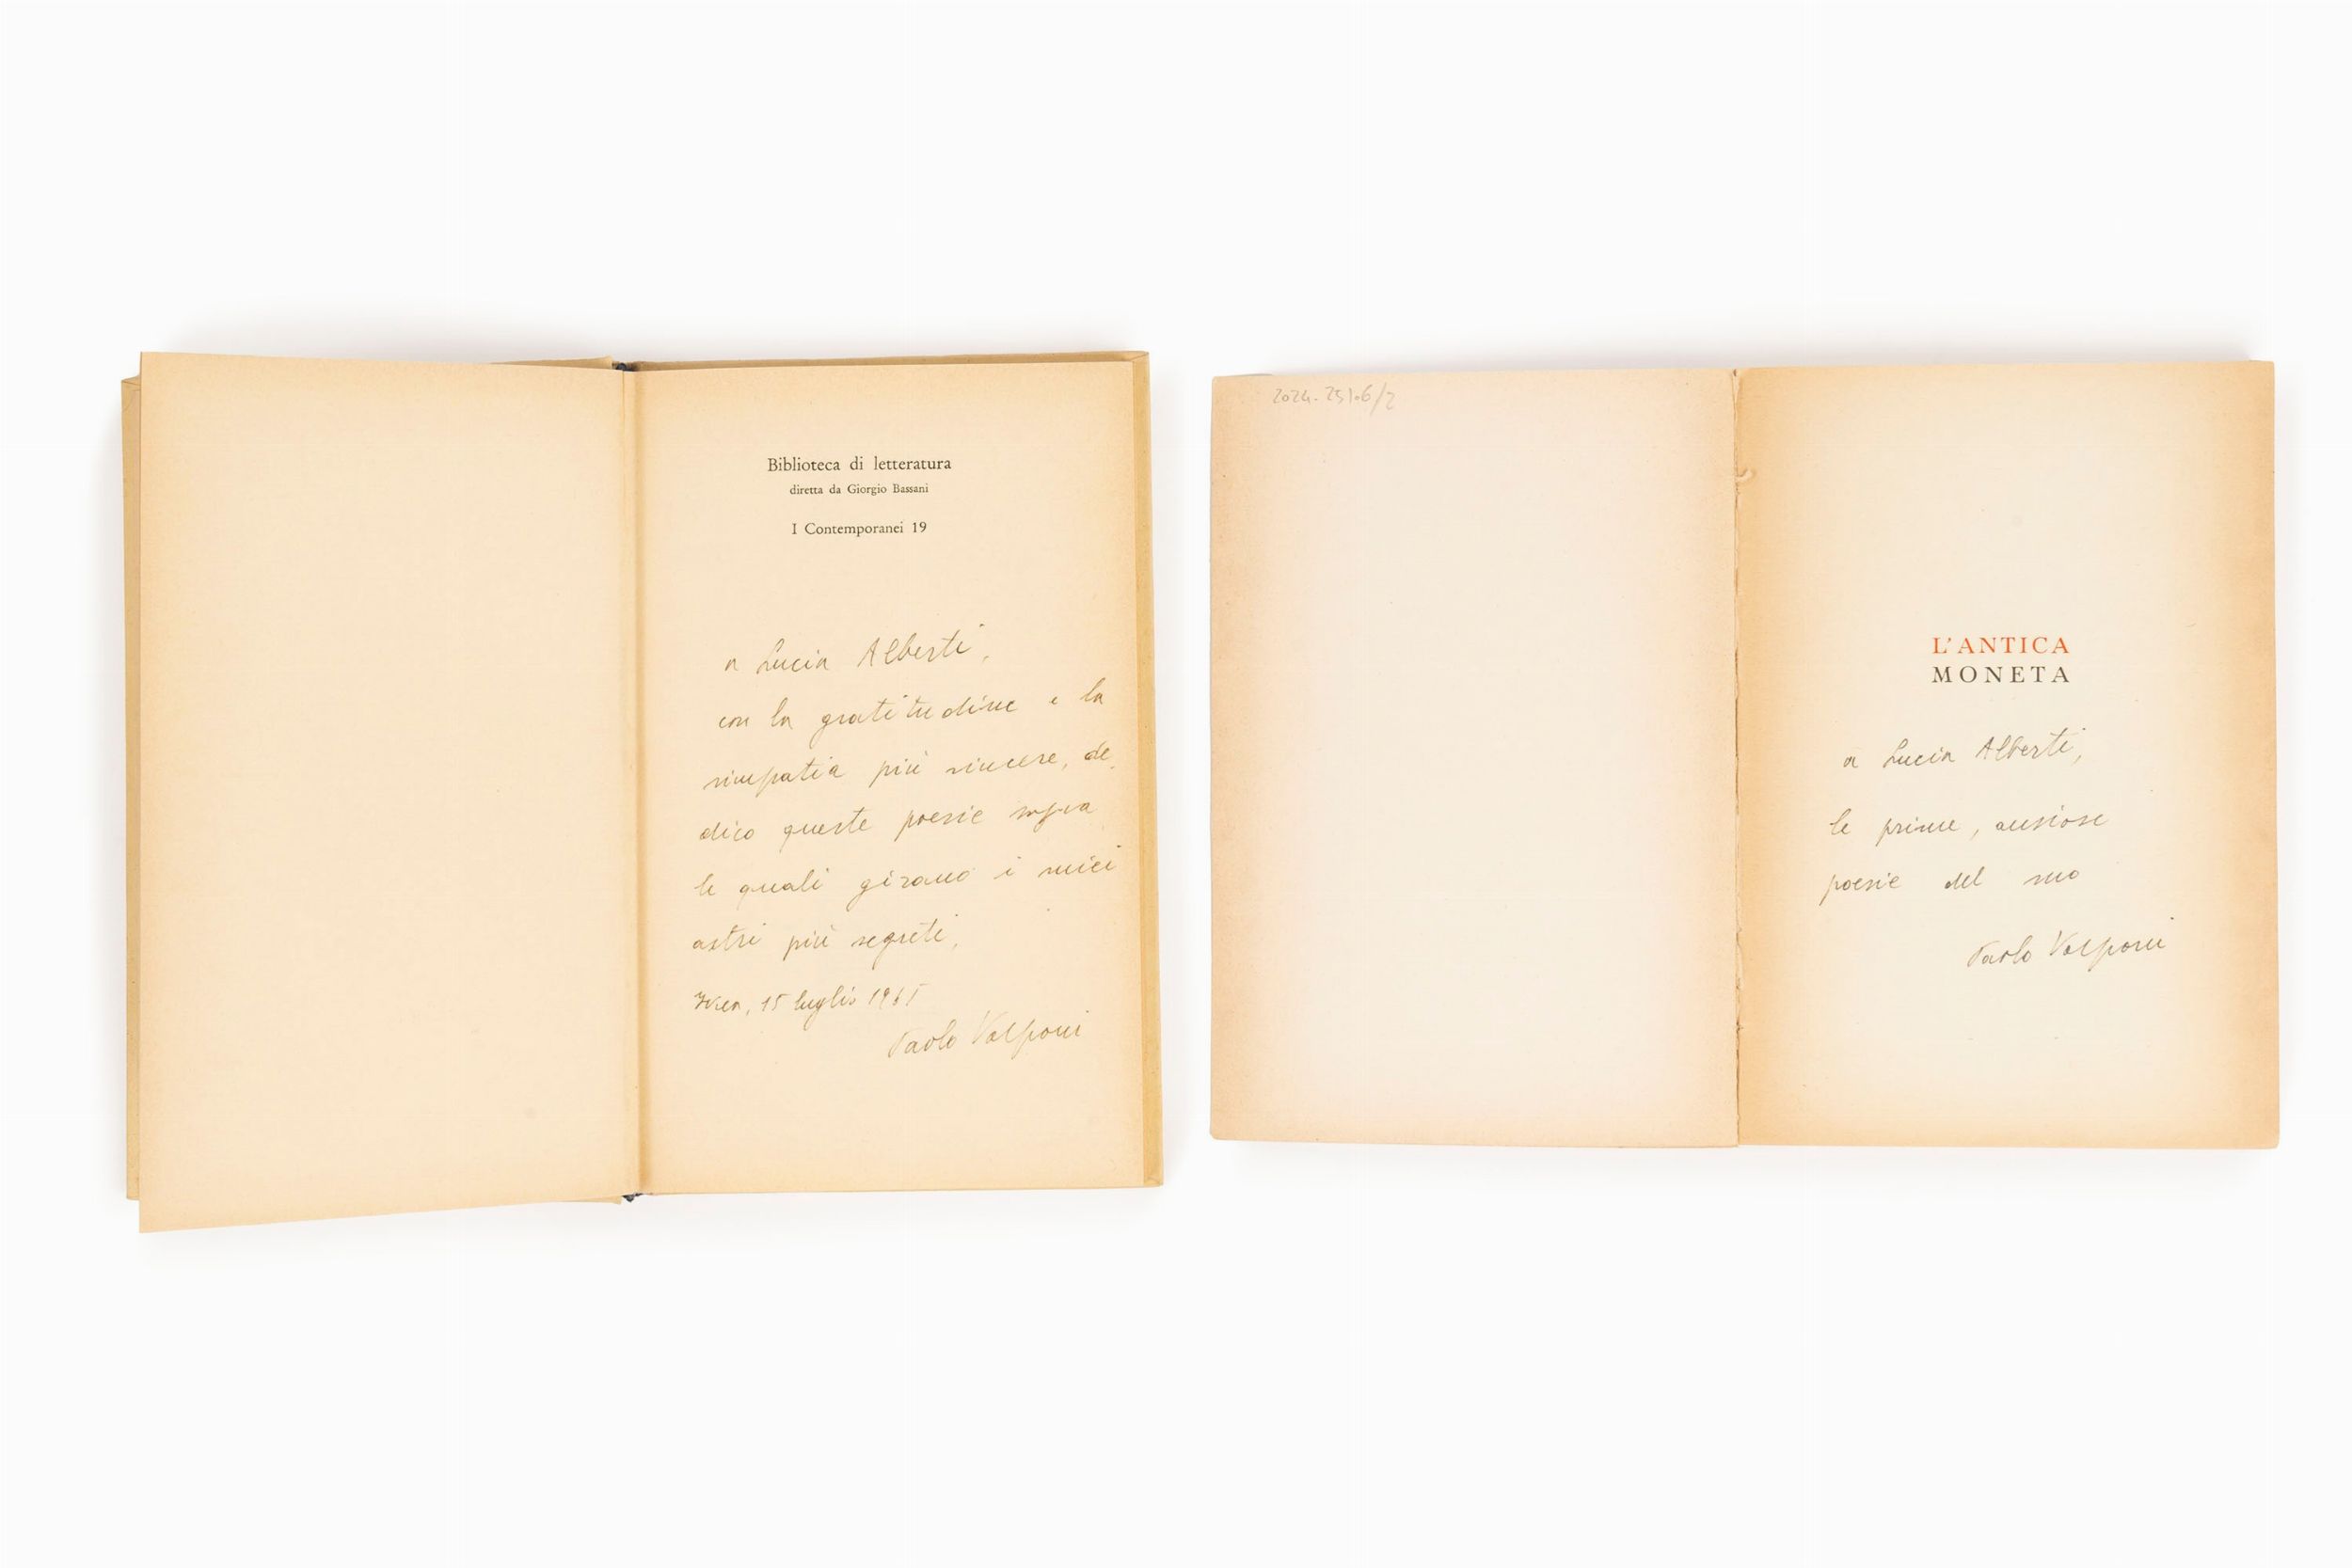 Biblioteca di letteratura
diretta da Giorgio Bassani
I Contemporanei 19
a Lucia Alberti,
con la gratitudine e la
simpatia più sincere, de
dico queste poesie sopra
le quali girano i miei
astri più segreti,
Ivrea, 15 luglio 1965
Paolo Volponi
2024.251.6/2
L'ANTICA
MONETA
a Lucia Alberti,
le prime, ansiose
poesie del suo
Paolo Volponi